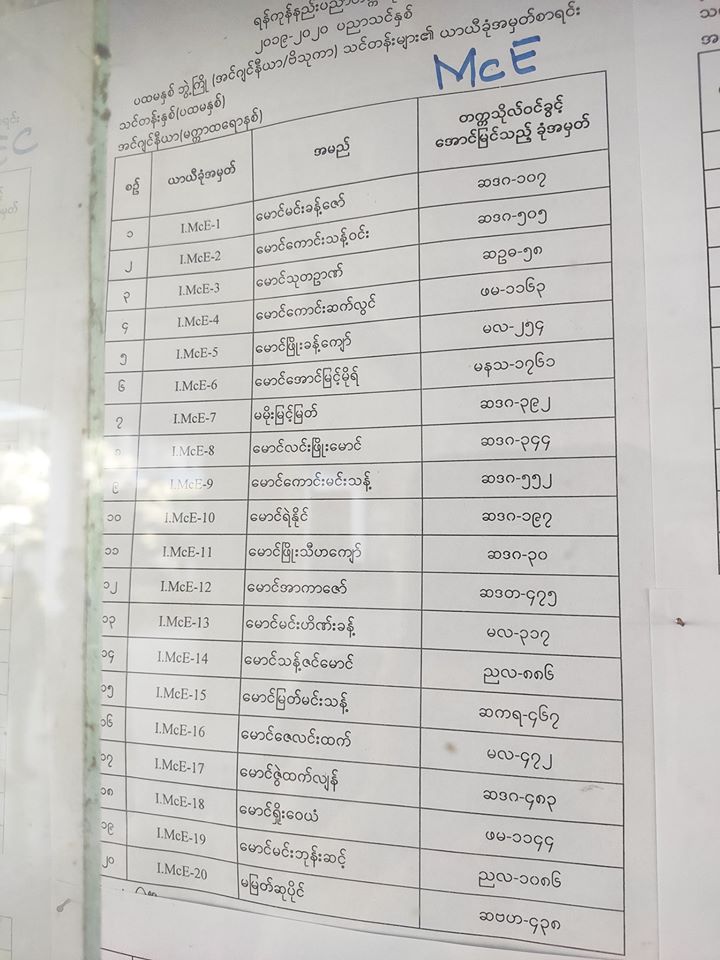 ရန်ကုန်နည်းပညာတက္က
၂၀၁၉-၂၀၂၀ ပညာသင်နှစ်
ပထမနှစ် ဘွဲ့ကြို (အင်ဂျင်နီယာ/ဗိသုကာ) သင်တန်းများ၏ ယာယီခုံအမှတ်စာရင်း
သင်တန်းနှစ်(ပထမနှစ်)
McE
အင်ဂျင်နီယာ(မက္ကာထရောနစ်)
စဉ် ယာယီခုံအမှတ် အမည် တက္ကသိုလ်ဝင်ခွင့် အောင်မြင်သည့် ခုံအမှတ်
၁ I.McE-1 မောင်မင်းခန့်ဇော် ဆဒဂ-၁၀၇
၂ I.McE-2 မောင်ကောင်းသန့်ဝင်း ဆဒဂ-၅၀၅
၃ I.McE-3 မောင်သုတဥာဏ် ဆဥဓ-၅၈
၄ I.McE-4 မောင်ကောင်းဆက်လွင် ဖမ-၁၁၆၃
၅ I.McE-5 မောင်ဖြိုးခန့်ကျော် မလ-၂၅၄
၆ I.McE-6 မောင်အောင်မြင့်မိုရ် မနသ-၁၇၆၁
၇ I.McE-7 မမိုးမြင့်မြတ် ဆဒဂ-၃၉၂
၈ I.McE-8 မောင်လင်းဖြိုးမောင် ဆဒဂ-၃၄၄
၉ I.McE-9 မောင်ကောင်းမင်းသန့် ဆဒဂ-၅၅၂
၁၀ I.McE-10 မောင်ရဲနိုင် ဆဒဂ-၁၉၇
၁၁ I.McE-11 မောင်ဖြိုးသီဟကျော် ဆဒဂ-၃၀
၁၂ I.McE-12 မောင်အာကာဇော် ဆဒတ-၄၇၅
၁၃ I.McE-13 မောင်မင်းဟိဏ်းခန့် မလ-၃၁၇
၁၄ I.McE-14 မောင်သန့်ဇင်မောင် ညလ-၈၈၆
၁၅ I.McE-15 မောင်မြတ်မင်းသန့် ဆကရ-၄၆၇
၁၆ I.McE-16 မောင်ဇေလင်းထက် မလ-၄၇၂
၁၇ I.McE-17 မောင်ဇွဲထက်လျှန် ဆဒဂ-၄၈၃
၁၈ I.McE-18 မောင်ရှိုးဝေယံ ဖမ-၁၁၄၄
၁၉ I.McE-19 မောင်မင်းဘုန်းဆင့် ညလ-၁၀၈၆
၂၀ I.McE-20 မမြတ်ဆုပိုင် ဆဗဟ-၄၃၈